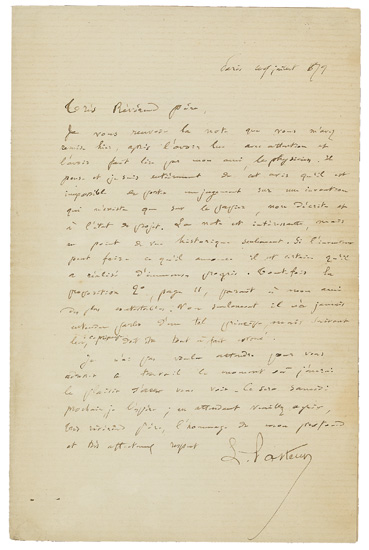 Paris
Très Révérend père,
Je vous renvoie la note que vous m'avez
remise hier, après l'avoir lue avec attention et
l'avoir fait lire par mon ami, le physicien. Il
pense et je suis entièrement de cet avis qu'il est
impossible de porter un jugement sur une invention
qui n'existe que sur le papier, non décrite et
à l'état de projet. La note est intéressante, mais
au point de vue historique seulement. Si l'inventeur
peut faire ce qu'il annonce il est certain qu'il
a réalisé d'immenses progrès. Toutefois la
proposition 2°, page 11, paraît à mon ami
des plus contestables. Non seulement il n'a jamais
entendu parler d'un tel principe, mais suivant
lui, ce principe doit être tout à fait erroné.
Je n'ai pas voulu attendre pour vous
ce travail le moment où j'aurai
le plaisir d'aller vous voir. Ce sera samedi
prochain je l'espère ; en attendant veuillez agréer,
très révérend père, l'hommage de mon profond
et très affectueux respect
L. Pasteur